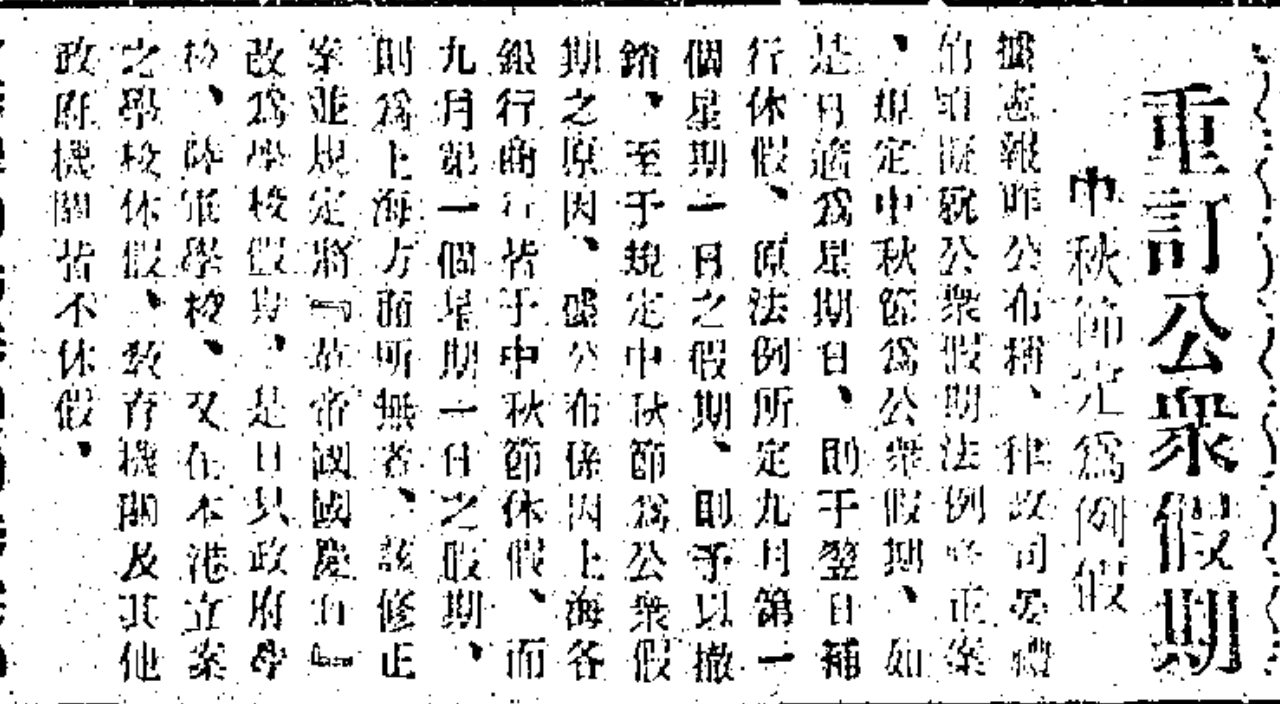 重訂公衆假期
中秋節定爲例假
據憲報昨公布稱、律政司晏禮
伯頃擬就公衆假期法例修正案
、規定中秋節爲公衆假期、如
是日適爲星期日、則于翌日補
行休假、原法例所定九月第一
個星期一日之假期、則予以撤
銷、至于規定中秋節爲公衆假
期之原因、據公布係因上海各
銀行商行皆于中秋節休假、而
九月第一個星期一日之假期、
則爲上海方面所無者、該修正
案並規定將「英帝國國慶日」
改爲學校假期、是日只政府學
校、陸軍學校、又在本港立案
之學校休假、教育機關及其他
政府機關皆不休假、